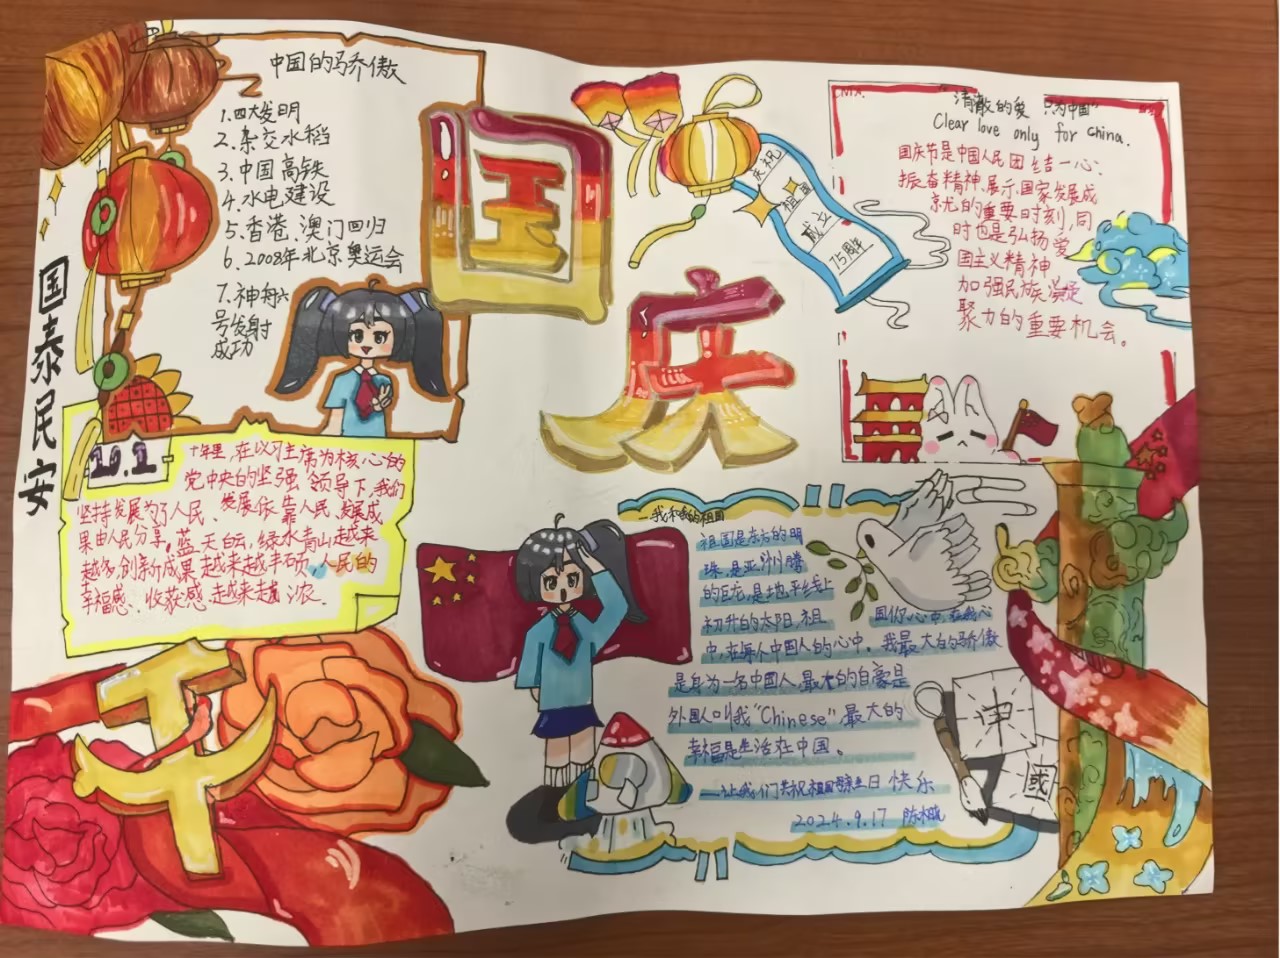 中国的骄傲
1.四大发明
2.杂交水稻
3.中国高铁
4.水电建设
5.香港、澳门回归
6.2008年北京奥运会
7.神舟六
号发射
成功
国泰民安
国庆
庆祝
祖国
成立
75周年
"清澈的爱 只为中国"
Clear love only for China.
国庆节是中国人民团结一心、
振奋精神、展示国家发展成
就的重要时刻,同
时也是弘扬爱
国主义精神
加强民族凝
聚力的重要机会。
10.1
十年里,在以习主席为核心的
党中央的坚强领导下,我们
坚持发展为了人民、发展依靠人民、发展成
果由人民分享,蓝天白云,绿水青山越来
越多,创新成果越来越丰硕,人民的
幸福感、收获感越来越浓.
—我和我的祖国
祖国是东方的明
珠,是亚洲腾
的巨龙,是地平线上
初升的太阳,祖
国你心中,在我心
中,在每个中国人的心中。我最大的骄傲
是身为一名中国人,最大的自豪是
外国人叫我"Chinese",最大的
幸福是生活在中国。
—让我们共祝祖国生日快乐
2024.9.17 陈
中
国